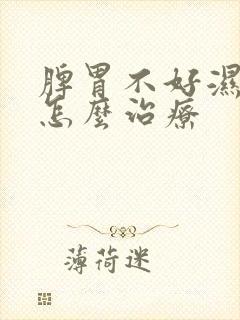 脾胃不好濕
怎麼治療
薄荷迷